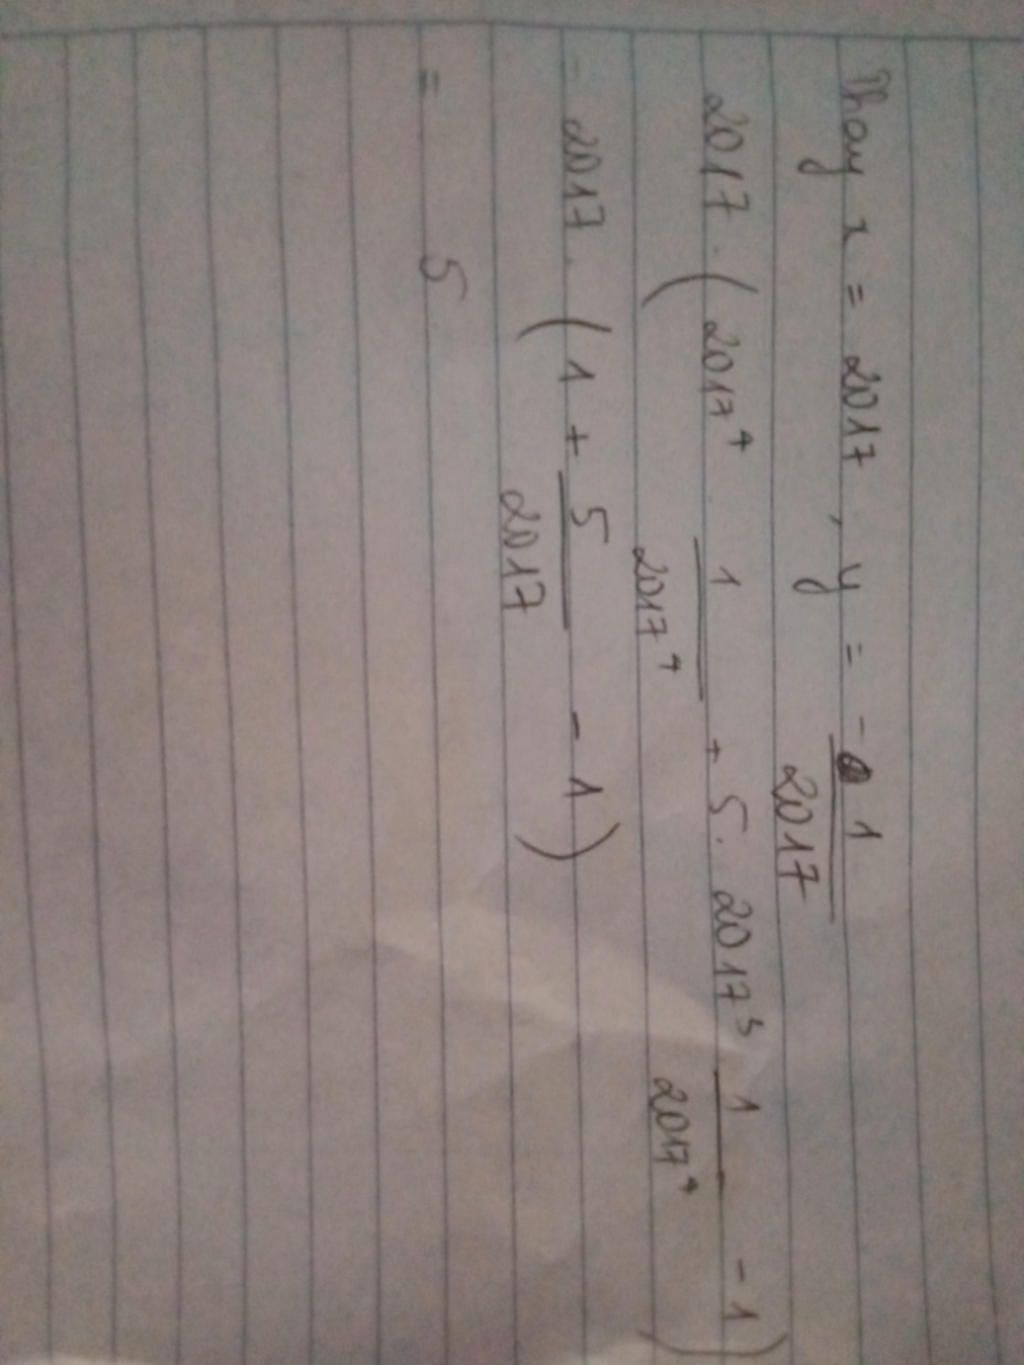 Thay x = 2017, y = -1/2017
2017. (2017⁴ 1/2017⁴ + 5. 2017³ 1/2017⁴ - 1)
= 2017. (1 + 5/2017 - 1)
= 5